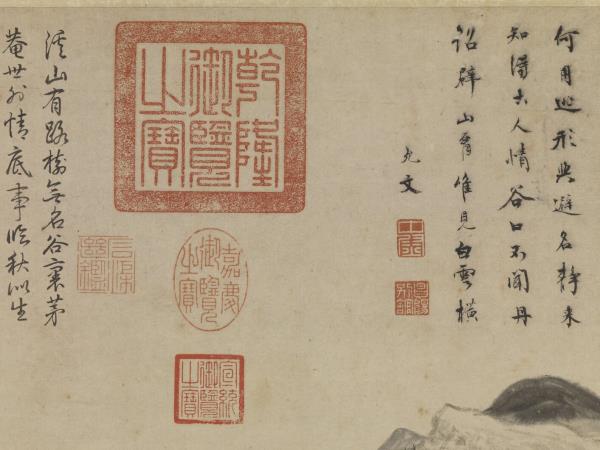 何用逃形與避名靜來
知得古人情谷口不聞丹
詔辟山唯見白雲橫
允文
乾隆御覽之寶
嘉慶御覽之寶
宣統御覽之寶
溪山有路無名谷裏茅
菴世外情底事臨秋似生